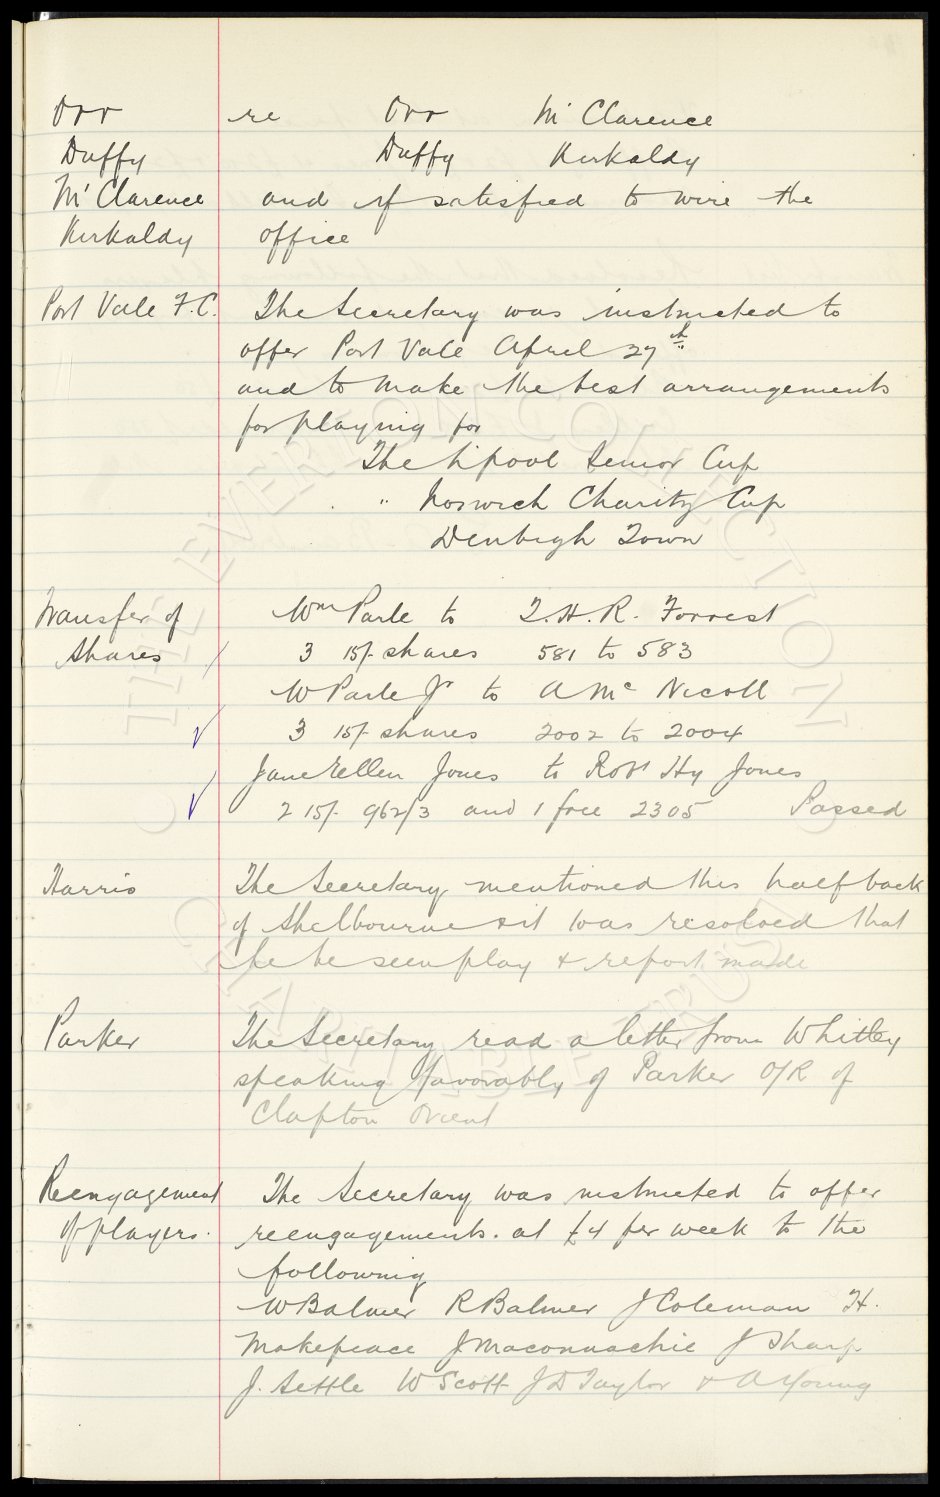 Orr re Orr McClarence
Duffy Duffy Kirkaldy
McClarence and if satisfied to wire the
Kirkaldy office
Port Vale F.C. The Secretary was instructed to
offer Port Vale April 27th
and to make the best arrangements
for playing for
The L'pool Senior Cup
" Norwich Charity Cup
Denbigh Town
Transfer of Wm Parle to T.H.R. Forrest
Shares 3 15/- shares 581 to 583
W Parle Jr to A Mc Nicoll
3 15/- shares 2002 to 2004
Jane Ellen Jones to Robt Hy Jones
2 15/- 962/3 and 1 free 2305 Passed
Harris The Secretary mentioned this half back
of Shelbourne & it was resolved that
he be seen play & report made
Parker The Secretary read a letter from Whitley
speaking favorably of Parker O/R of
Clapton Orient
Reengagement The Secretary was instructed to offer
of players. reengagements. at £4 per week to the
following
W Balmer R Balmer J Coleman H.
Makepeace J Maconnachie J Sharp
J. Settle W Scott J D Taylor & A Young
THE EVERTON COLLECTION
CHARITABLE TRUST